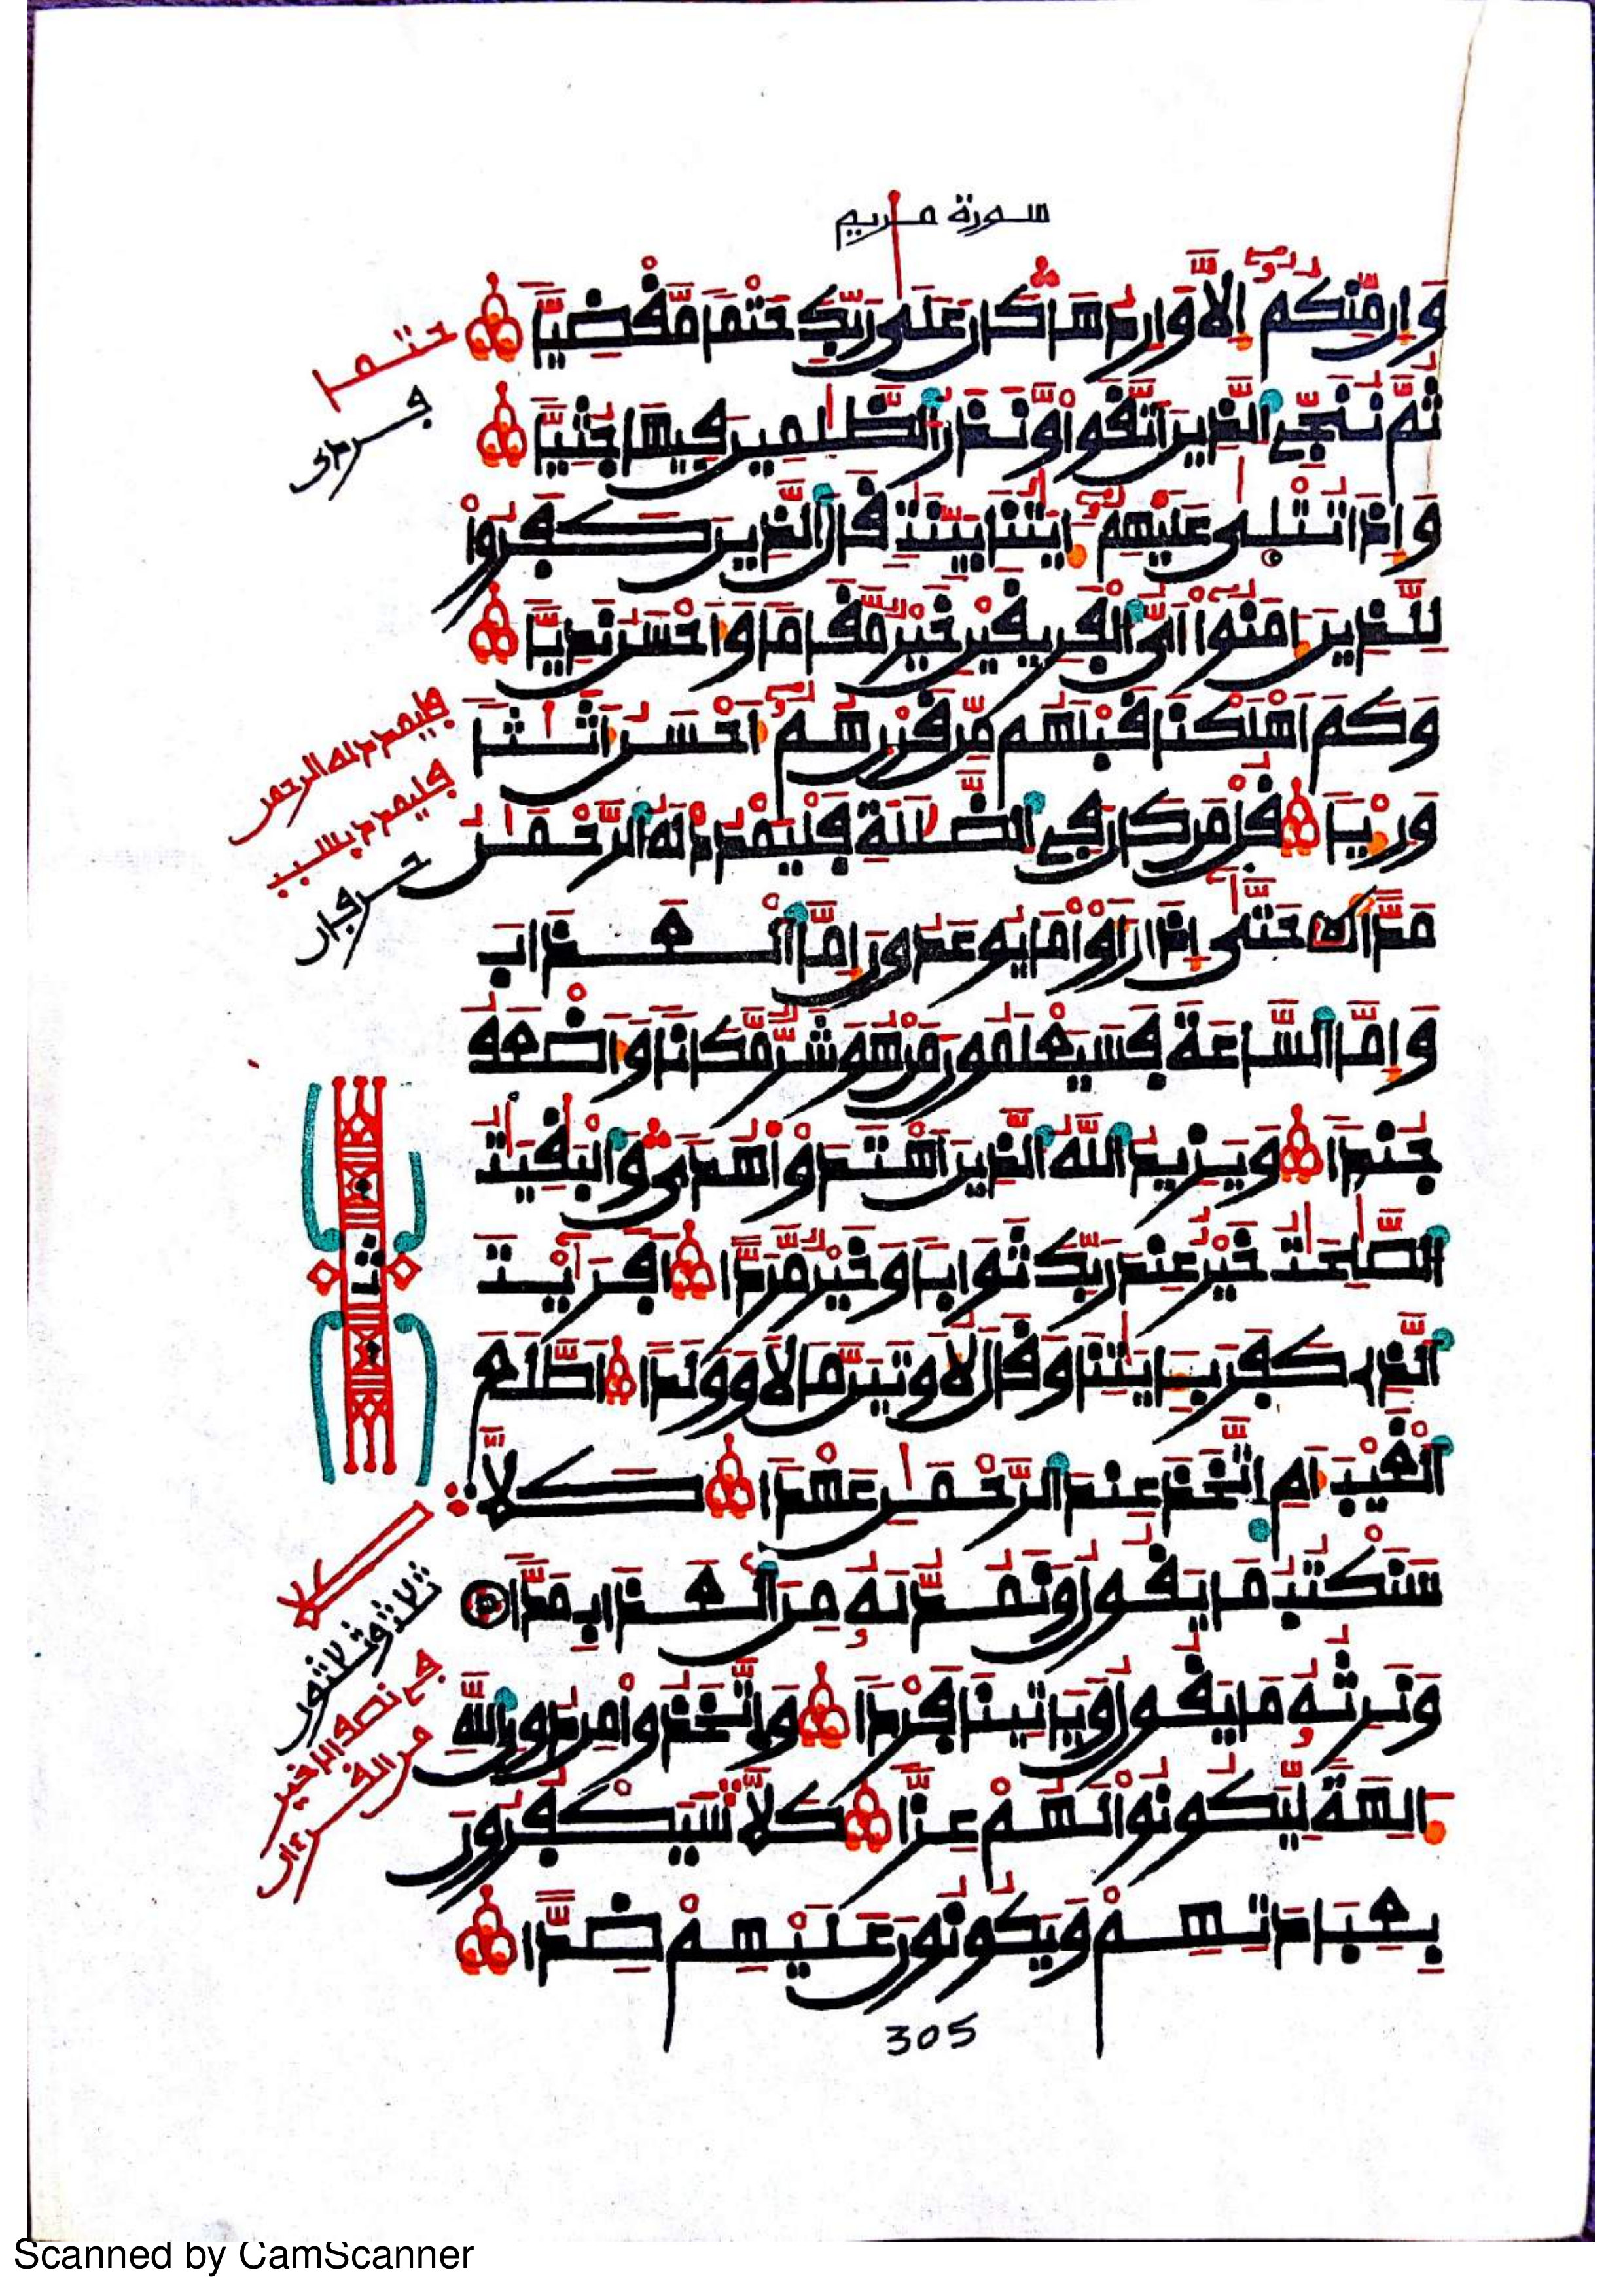 سورة مريم
وَإِن مِّنكُمُۥٓ إِلَّا وَارِدُهَا كَانَ عَلَىٰ رَبِّكَ حَتْمًا مَّقْضِيًّا
ثُمَّ نُنَجِّي الَّذِينَ اتَّقَوا وَّنَذَرُ الظَّٰلِمِينَ فِيهَا جُثِيًّا
وَإِذَا تُتْلَىٰ عَلَيْهِمُۥٓ ءَايَٰتُنَا بَيِّنَٰتٍ قَالَ الَّذِينَ كَفَرُوا
لِلَّذِينَ ءَامَنُوا أَيُّ الْفَرِيقَيْنِ خَيْرٌ مَّقَامًا وَأَحْسَنُ نَدِيًّا
وَكَمْ أَهْلَكْنَا قَبْلَهُم مِّن قَرْنٍ هُمُۥٓ أَحْسَنُ أَثَٰثًا
وَرِءْيًا قُلْ مَن كَانَ فِي الضَّلَٰلَةِ فَلْيَمْدُدْ لَهُ الرَّحْمَٰنُ
مَدًّا حَتَّىٰ إِذَا رَأَوْا مَا يُوعَدُونَ إِمَّا الْعَذَابَ
وَإِمَّا السَّاعَةَ فَسَيَعْلَمُونَ مَنْ هُوَ شَرٌّ مَّكَانًا وَأَضْعَفُ
جُندًا وَيَزِيدُ اللَّهُ الَّذِينَ اهْتَدَوْا هُدًى وَالْبَٰقِيَٰتُ
الصَّٰلِحَٰتُ خَيْرٌ عِندَ رَبِّكَ ثَوَابًا وَخَيْرٌ مَّرَدًّا أَفَرَأَيْتَ
الَّذِي كَفَرَ بِـَٔايَٰتِنَا وَقَالَ لَأُوتَيَنَّ مَالًا وَوَلَدًا أَطَّلَعَ
الْغَيْبَ أَمِ اتَّخَذَ عِندَ الرَّحْمَٰنِ عَهْدًا كَلَّا
سَنَكْتُبُ مَا يَقُولُ وَنَمُدُّ لَهُۥ مِنَ الْعَذَابِ مَدًّا
وَنَرِثُهُۥ مَا يَقُولُ وَيَأْتِينَا فَرْدًا وَاتَّخَذُوا مِن دُونِ اللَّهِ
ءَالِهَةً لِّيَكُونُوا لَهُمْ عِزًّا كَلَّا سَيَكْفُرُونَ
بِعِبَادَتِهِمْ وَيَكُونُونَ عَلَيْهِمْ ضِدًّا
305
حتما
فليمدد له الرحمن
فليمدد بسبب
ثمن
كلا
ثلاثة وثلاثون
في نصف الاخير
من القرءان
Scanned by CamScanner